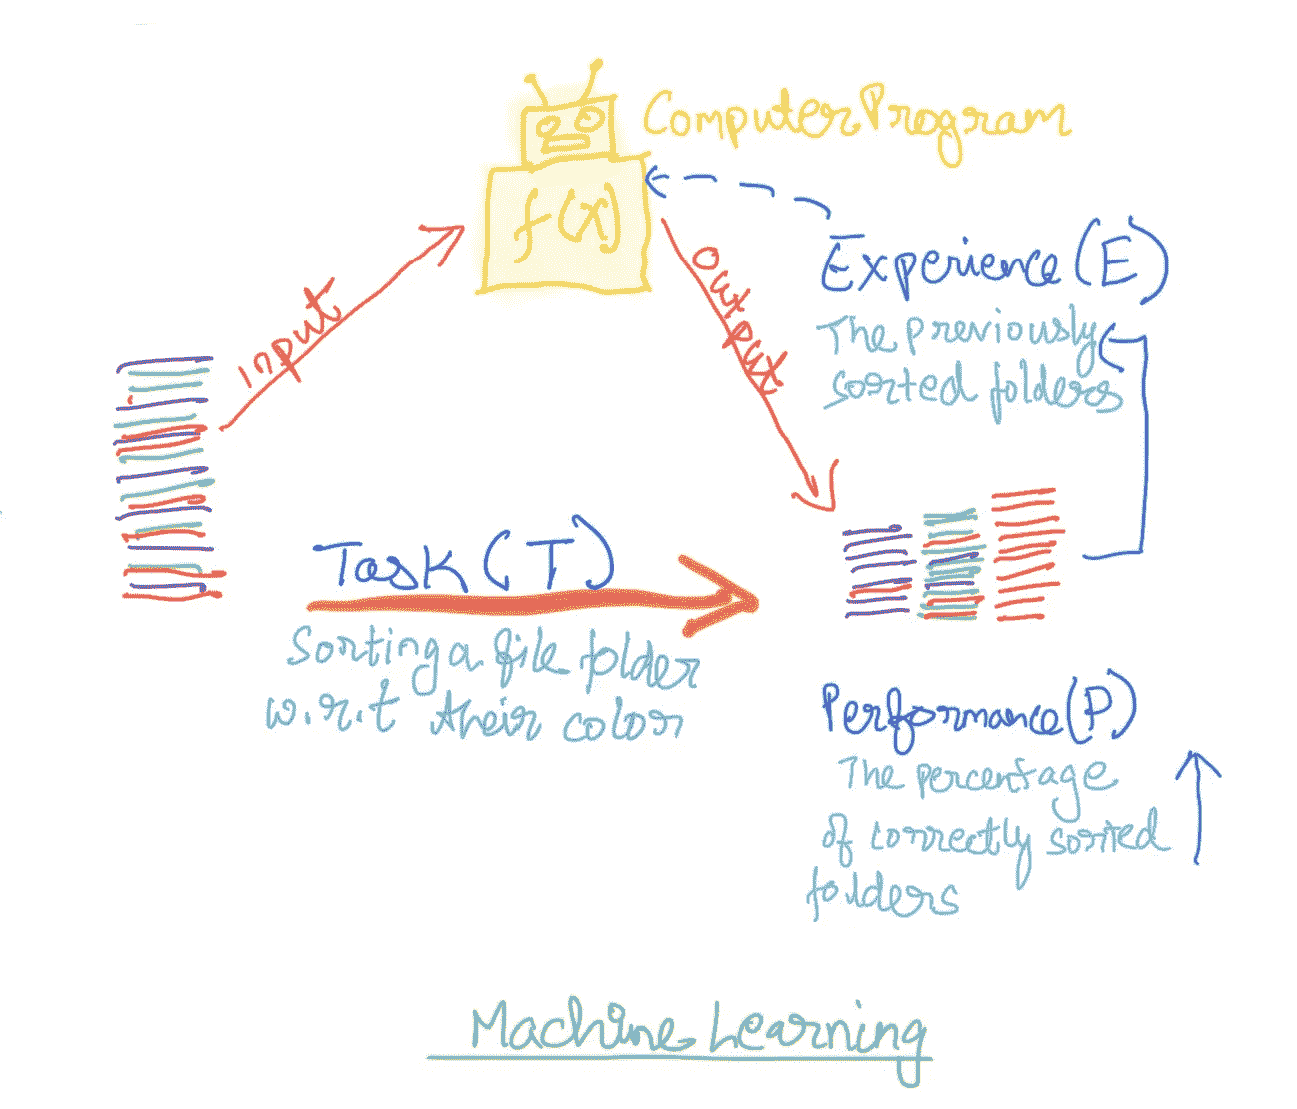 Computer Program
f(x)
input
output
Experience (E)
The previously
sorted folders
Task (T)
Sorting a file folder
w.r.t their color
Performance (P)
The percentage
of correctly sorted
folders
Machine Learning